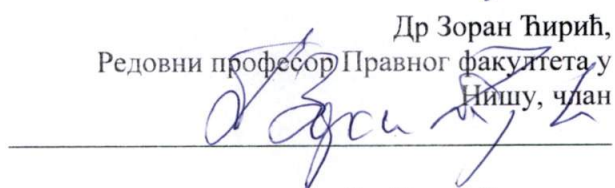 Др Зоран Ћирић,
Редовни професор Правног факултета у
Нишу, члан